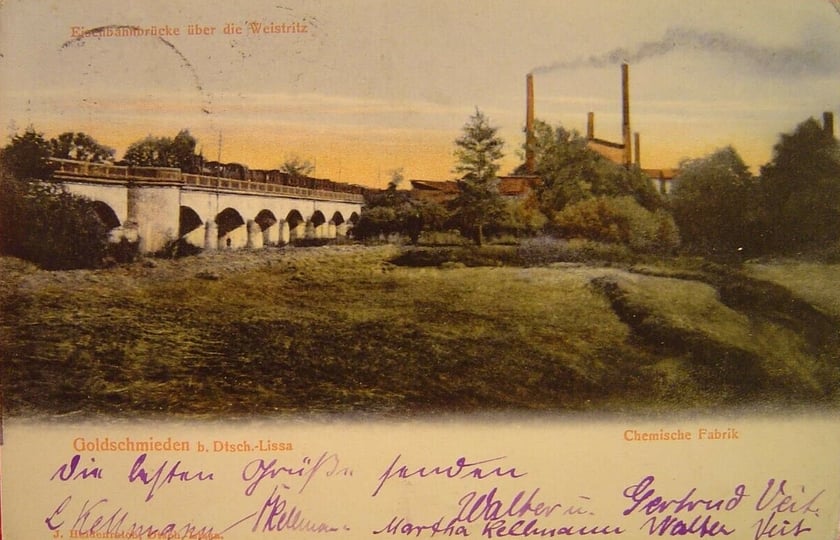 Eisenbahnbrücke über die Weistritz
Goldschmieden b. Dtsch.-Lissa
Chemische Fabrik
Die besten Grüße senden
Walter u. Gertrud Veit.
L Kellmann Kellmann Martha Kellmann Walter Veit